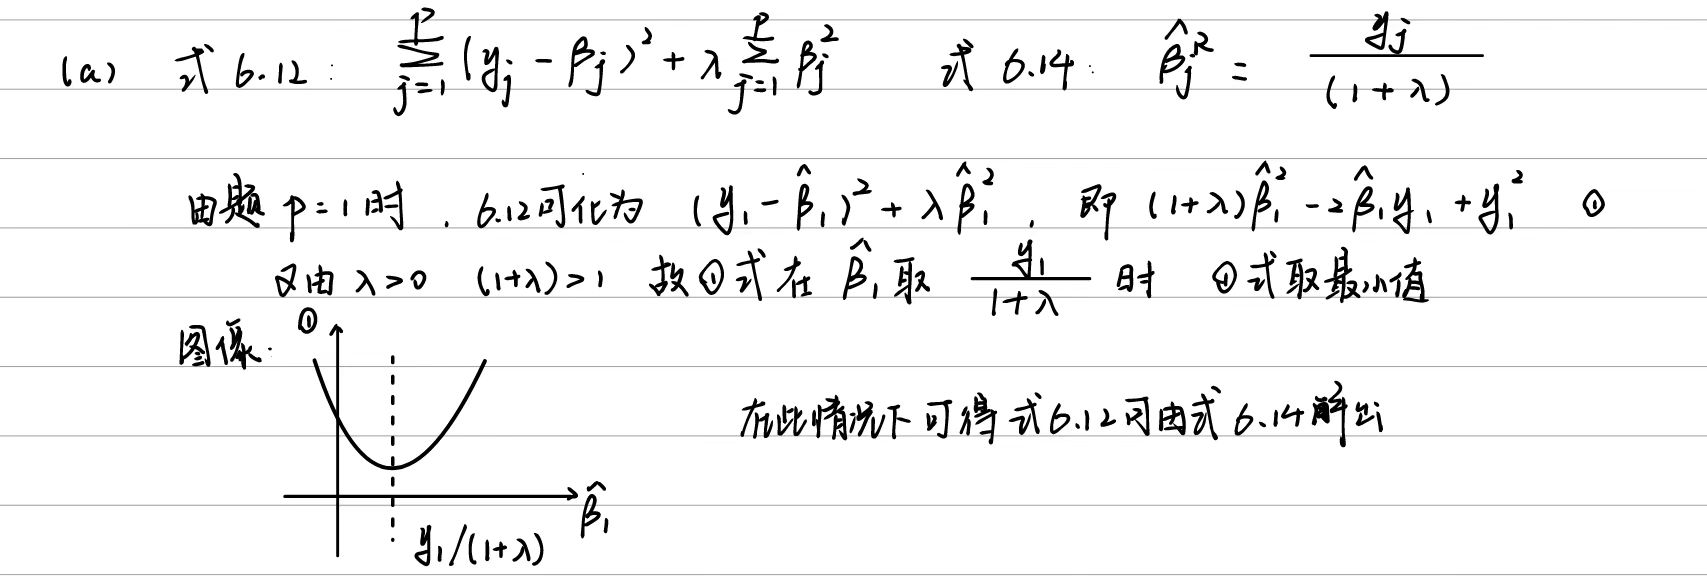 (a) 式 6.12: $\sum_{j=1}^{p}(y_j-\beta_j)^2+\lambda\sum_{j=1}^{p}\beta_j^2$ 式 6.14: $\hat{\beta}_j^R=\frac{y_j}{(1+\lambda)}$
由题 p=1时, 6.12可化为 $(y_1-\hat{\beta}_1)^2+\lambda\hat{\beta}_1^2$, 即 $(1+\lambda)\hat{\beta}_1^2-2\hat{\beta}_1y_1+y_1^2$ ①
又由 λ>0 (1+λ)>1 故①式在 $\hat{\beta}_1$取 $\frac{y_1}{1+\lambda}$ 时 ①式取最小值
图像:
①
在此情况下可得式6.12可由式6.14解出
$\hat{\beta}_1$
$y_1/(1+\lambda)$